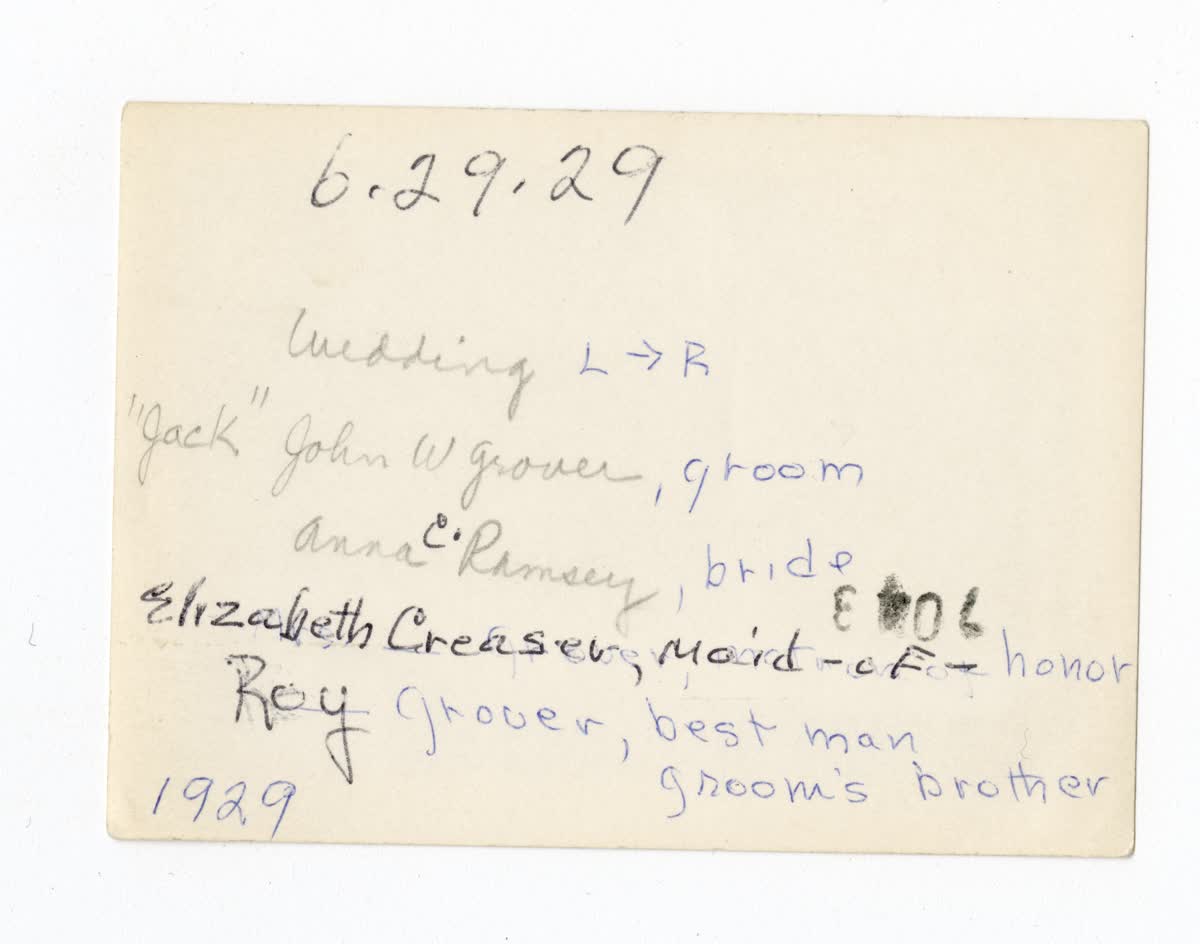 6.29.29
Wedding L → R
"Jack" John W Grover, groom
Anna C. Ramsey, bride
Elizabeth Creaser, Maid-of-honor
Roy Grover, best man,
groom's brother
1929